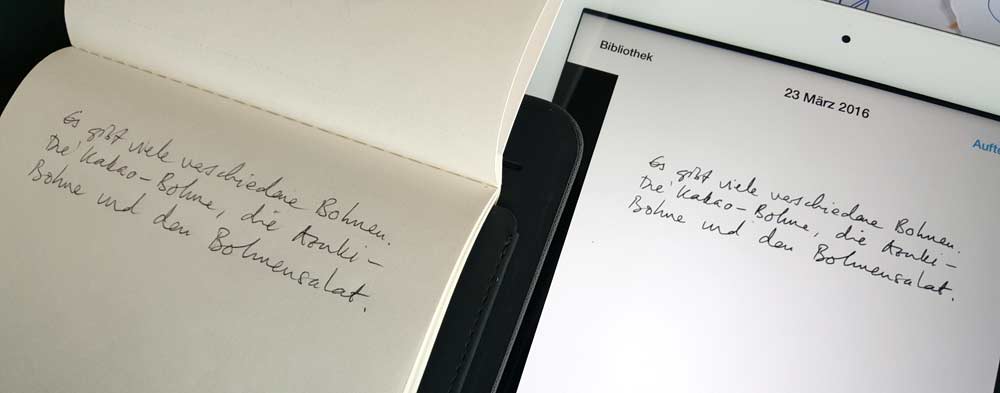 Es gibt viele verschiedene Bohnen.
Die Kakao-Bohne, die Azuki-
Bohne und den Bohnensalat.
Bibliothek
23 März 2016
Es gibt viele verschiedene Bohnen.
Die Kakao-Bohne, die Azuki-
Bohne und den Bohnensalat.